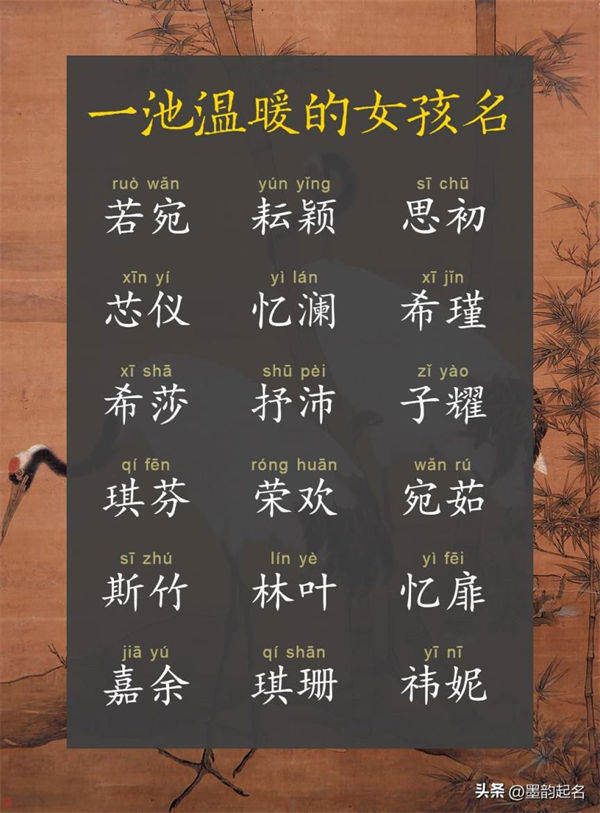 一池温暖的女孩名
ruò wǎn yún yǐng sī chū
若宛 耘颖 思初
xīn yí yì lán xī jǐn
芯仪 忆澜 希瑾
xī shā shū pèi zǐ yào
希莎 抒沛 子耀
qí fēn róng huān wǎn rú
琪芬 荣欢 宛茹
sī zhú lín yè yì fēi
斯竹 林叶 忆扉
jiā yú qí shān yī nī
嘉余 琪珊 祎妮
头条 @墨韵起名